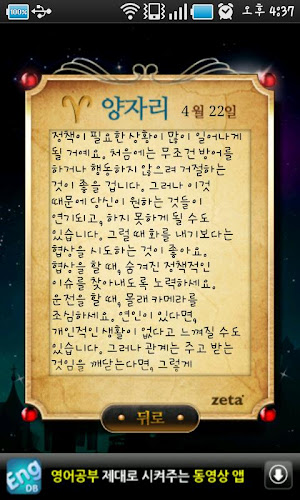 100%
오후 4:37
양자리 4월 22일
정책이 필요한 상황이 많이 일어나게
될 거예요. 처음에는 무조건 방어를
하거나 행동하지 않으려 거절하는
것이 좋을 겁니다. 그러나 이것
때문에 당신이 원하는 것들이
연기되고, 하지 못하게 될 수도
있습니다. 그럴 때 화를 내기보다는
협상을 시도하는 것이 좋아요.
협상을 할 때, 숨겨진 정책적인
이슈를 찾아내도록 노력하세요.
운전을 할 때, 몰래 카메라를
조심하세요. 연인이 있다면,
개인적인 생활이 없다고 느껴질 수도
있습니다. 그러나 관계는 주고 받는
것임을 깨닫는다면, 그렇게
zeta
뒤로
Eng DB
영어공부 제대로 시켜주는 동영상 앱